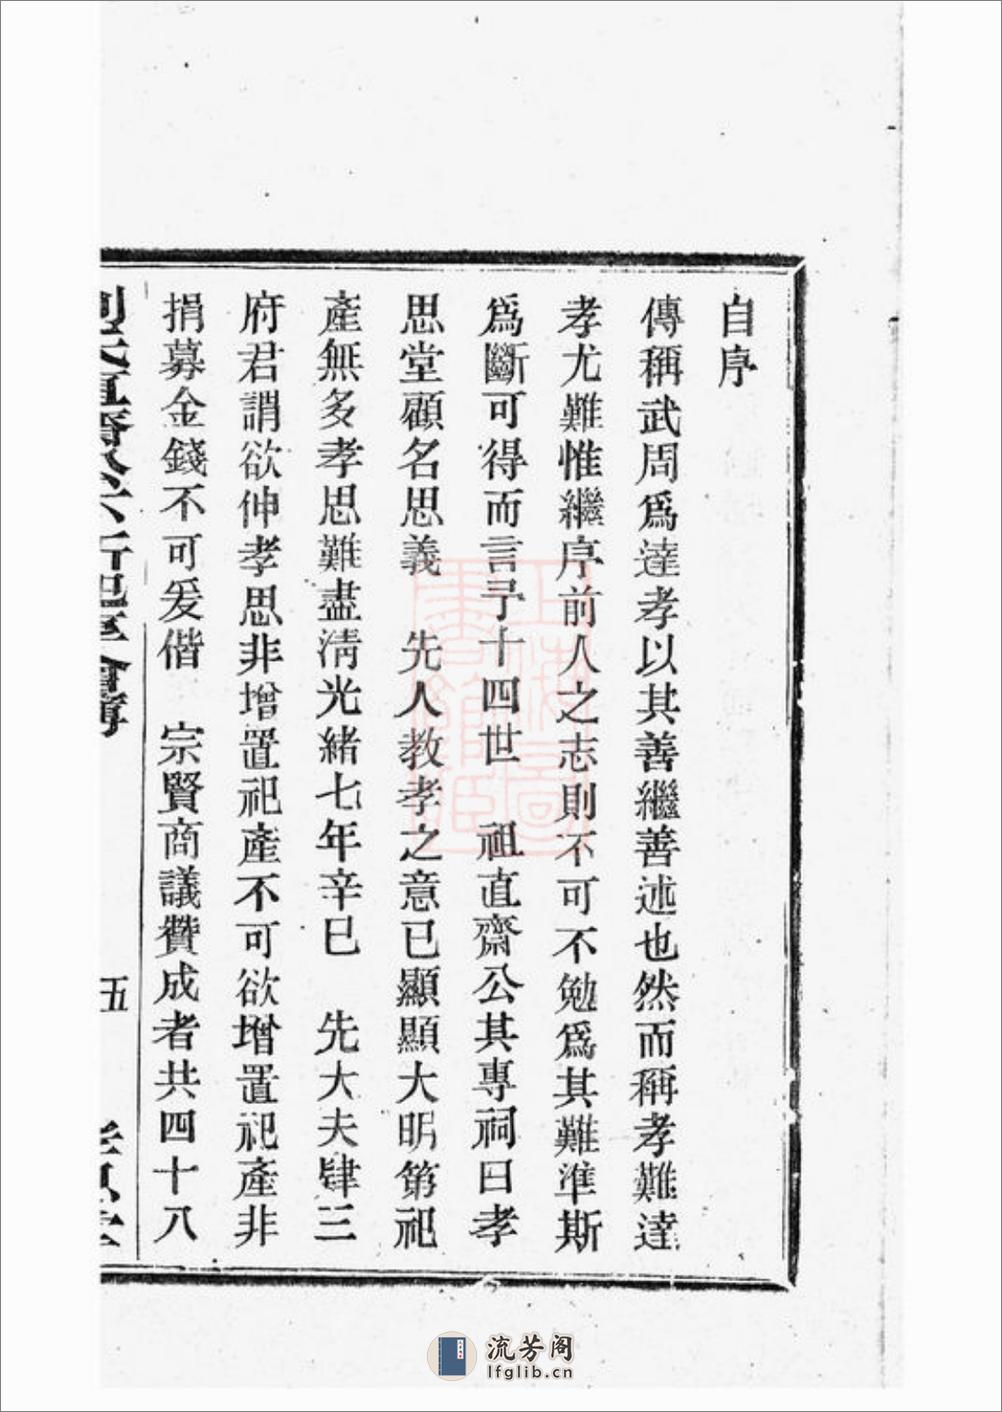 自序
傳稱武周爲達孝以其善繼善述也然而稱孝難達
孝尤難惟繼序前人之志則不可不勉爲其難準斯
爲斷可得而言予十四世　祖直齋公其專祠曰孝
思堂顧名思義　先人教孝之意已顯顯大明第祀
產無多孝思難盡淸光緒七年辛巳　先大夫肆三
府君謂欲伸孝思非增置祀產不可欲增置祀產非
捐募金錢不可爰偕　宗賢商議贊成者共四十八
伍
上海圖書館藏
流芳阁
lfglib.cn